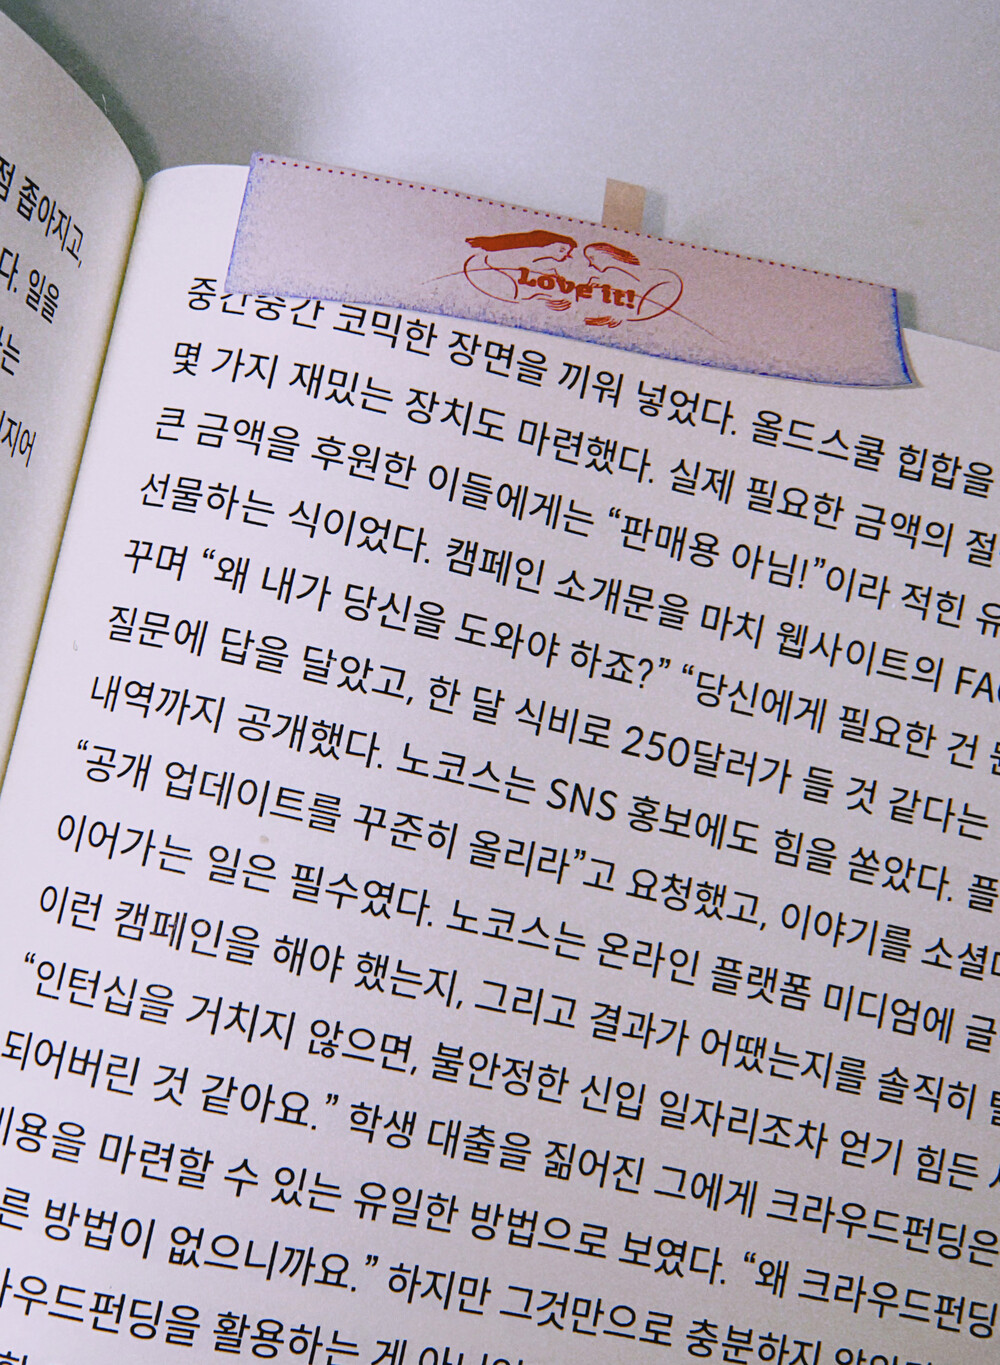 좁아지고,
일을
Love it!
중간중간 코믹한 장면을 끼워 넣었다. 올드스쿨 힙합을
몇 가지 재밌는 장치도 마련했다. 실제 필요한 금액의
큰 금액을 후원한 이들에게는 “판매용 아님!”이라 적힌
선물하는 식이었다. 캠페인 소개문을 마치 웹사이트의
꾸며 “왜 내가 당신을 도와야 하죠?” “당신에게 필요한 건
질문에 답을 달았고, 한 달 식비로 250달러가 들 것 같다는
내역까지 공개했다. 노코스는 SNS 홍보에도 힘을 쏟았다.
“공개 업데이트를 꾸준히 올리라”고 요청했고, 이야기를
이어가는 일은 필수였다. 노코스는 온라인 플랫폼 미디엄에 글
이런 캠페인을 해야 했는지, 그리고 결과가 어땠는지를 솔직히
“인턴십을 거치지 않으면, 불안정한 신입 일자리조차 얻기 힘든
되어버린 것 같아요.” 학생 대출을 짊어진 그에게 크라우드펀딩은
마련할 수 있는 유일한 방법으로 보였다. “왜 크라우드펀딩
방법이 없으니까요.” 하지만 그것만으로 충분하지
활용하는 게